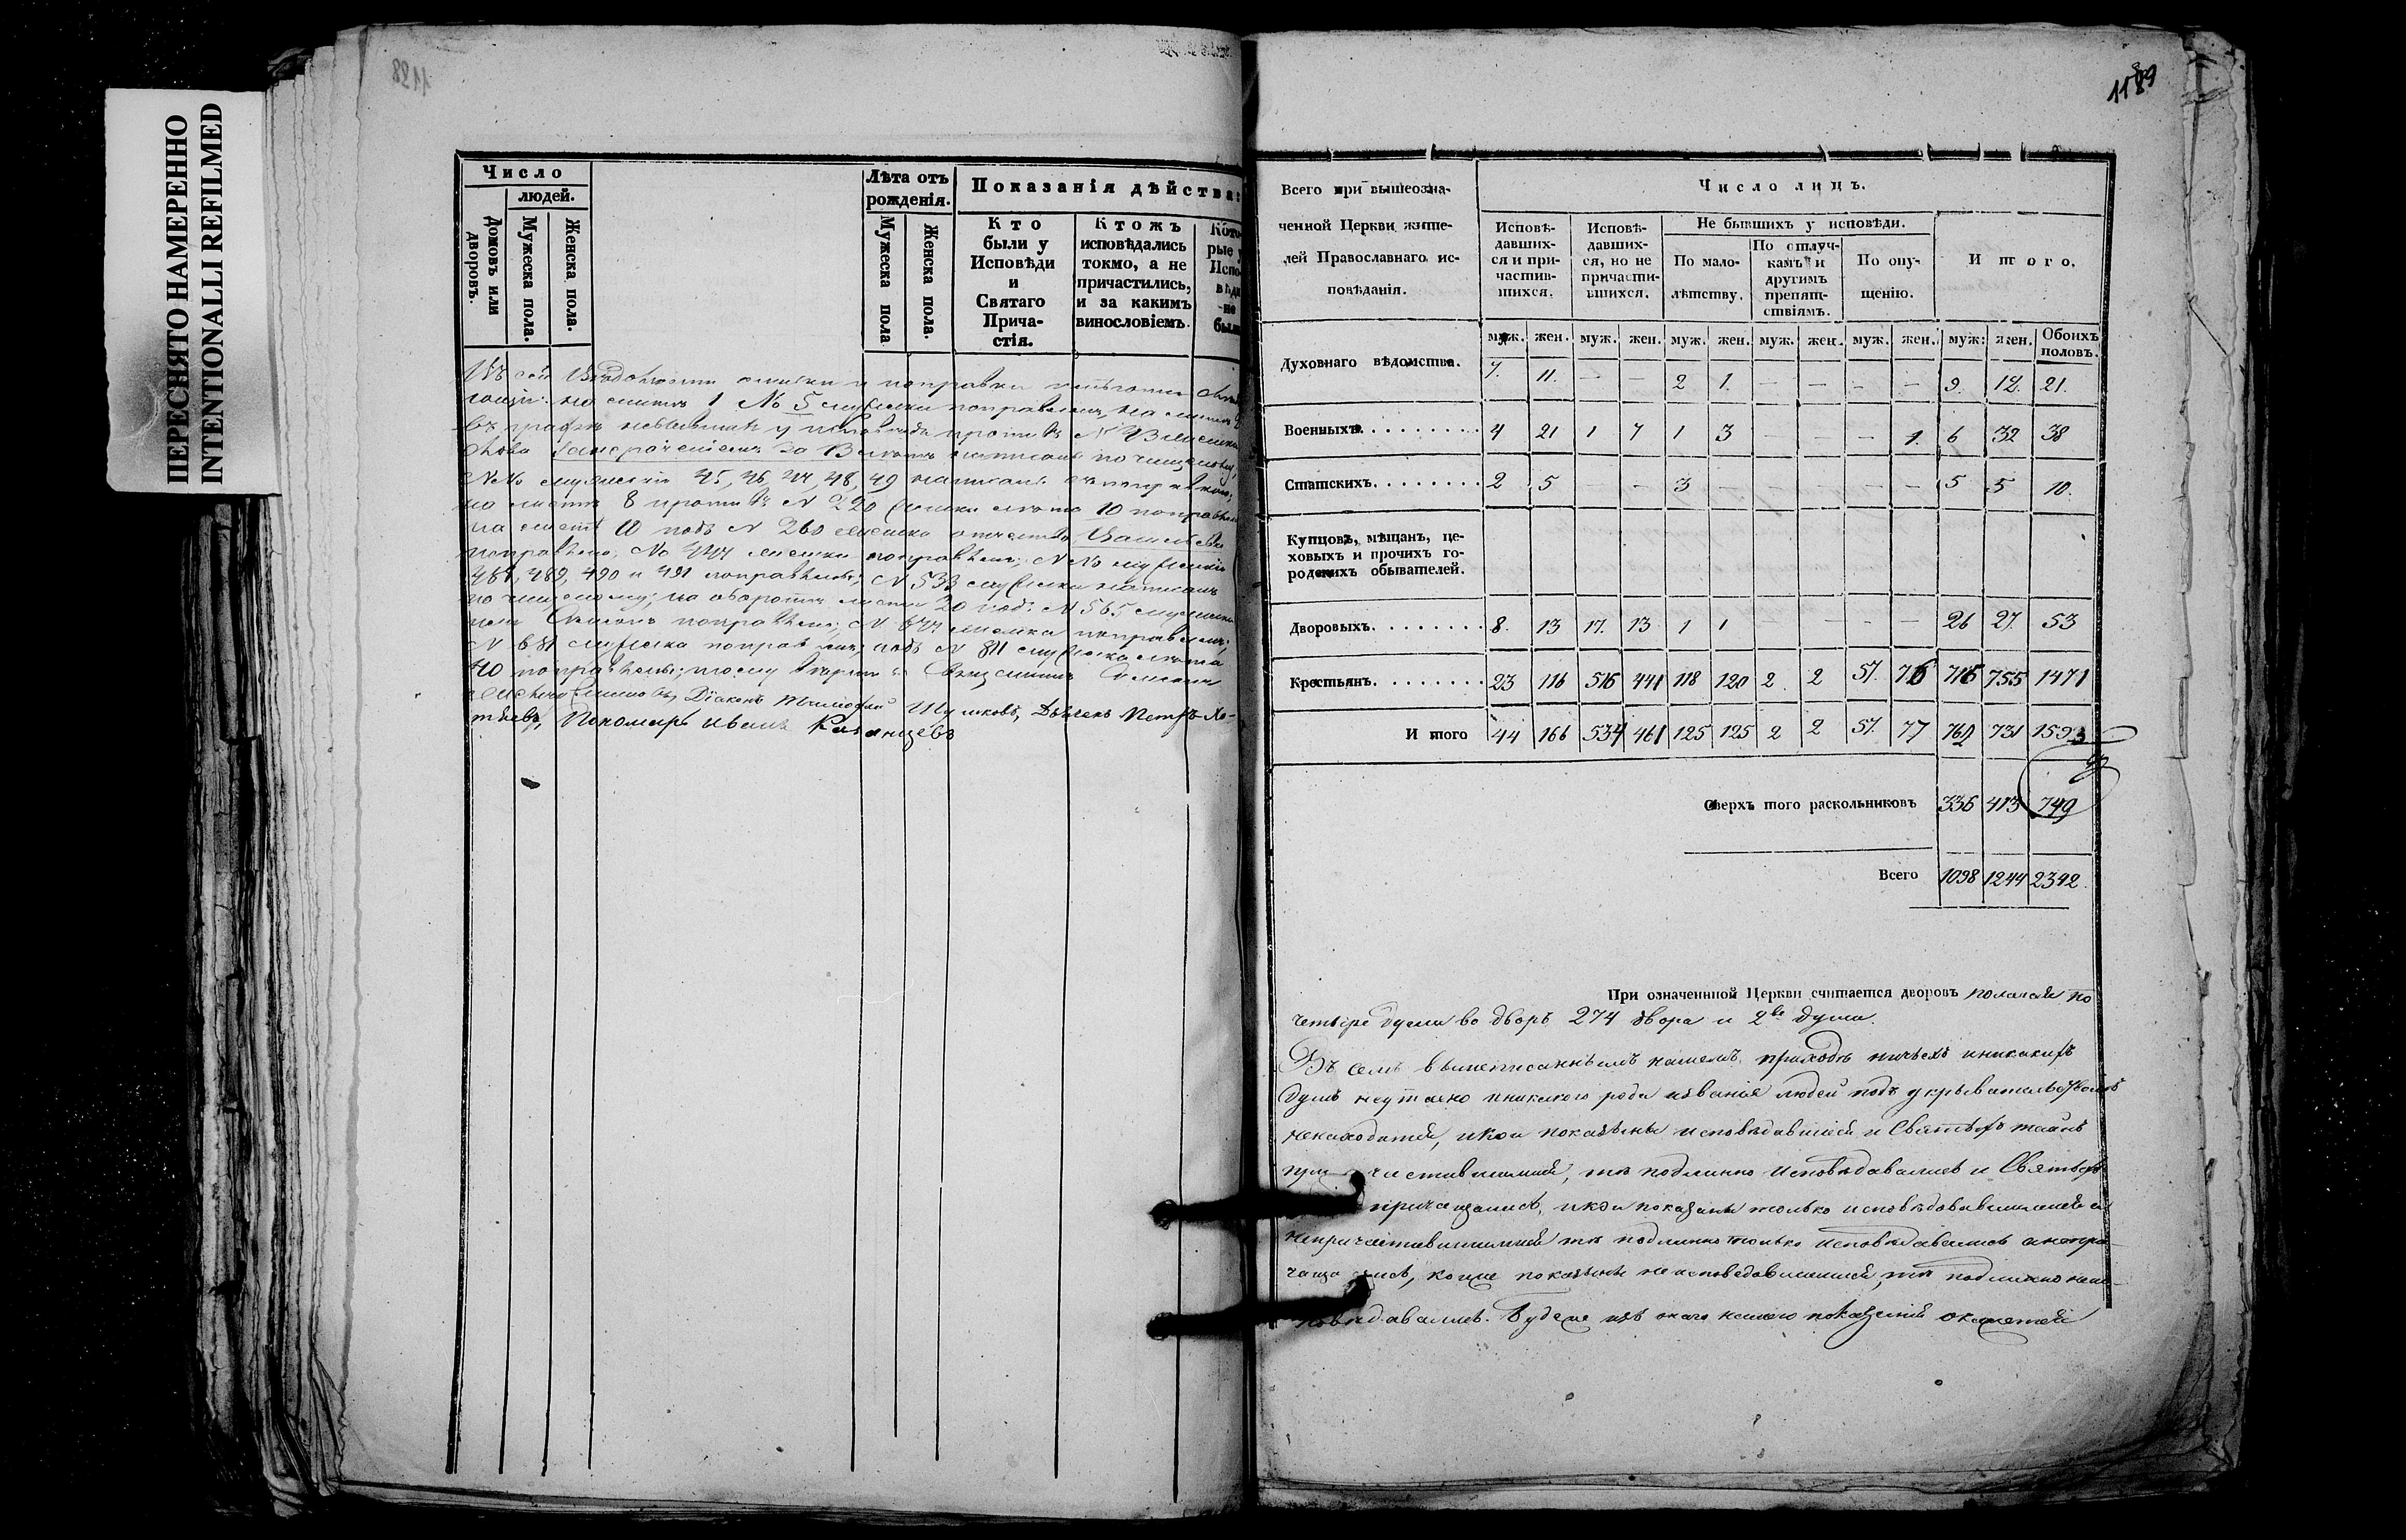 ПЕРЕСНЯТО НАМЕРЕННО
INTENTIONALLI REFILMED
1188
Число
людей.
Домовъ или дворовъ.
Мужеска пола.
Женска пола.
Лѣта отъ рожденія.
Мужеска пола
Женска пола.
Показанія дѣйства:
Кто были у Исповѣди и Святаго Причастія.
Ктожъ исповѣдались токмо, а не причастились, и за какимъ винословіемъ.
Которые у Испо
вѣди
не
были
Въ сей Вѣдомости ошибки и поправки
на листѣ 1 № 5 мужеска поправлено, на листѣ
въ графѣ небывшихъ у исповѣди противъ №
слова за написано по чищеному,
№№ мужескіе 45, 46, 47, 48, 49 написаны
на листѣ 8 противъ № 220 лѣта 10
на листѣ 10 подъ № 260 женска отчество
поправлено, № 447 женска поправленъ; №№ мужескіе
487, 489, 490 и 491 поправлены; № 533 мужеска написанъ
по чищеному; на оборотѣ листа 20 подъ № 565 мужеска
поправлено; женска поправленъ;
№ 681 мужеска поправленъ, подъ № 811 мужеска лѣта
40 поправлены;
Діаконъ Тимофей Дьячекъ Петръ
Пономарь Иванъ Казанцевъ
1189
Всего при вышеозначенной Церкви жителей Православнаго исповѣданія.
Число лицъ.
Исповѣдавшихся и причастившихся.
Исповѣдавшихся, но не причастившихся.
Не бывшихъ у исповѣди.
По малолѣтству.
По отлучкамъ и другимъ препятствіямъ.
По опущенію.
Итого.
муж. жен. муж. жен. муж. жен. муж. жен. муж. жен. муж: жен. Обоихъ половъ.
Духовнаго вѣдомства. 7. 11. — — 2 1. — — — — 9. 12. 21.
Военныхъ. 4 21 1 7 1 3 — — — 1. 6 32 38
Статскихъ. 2 5 — — 3 — — — — — 5 5 10.
Купцовъ, мѣщанъ, цеховыхъ и прочихъ городскихъ обывателей.
Дворовыхъ. 8. 13 17. 13 1 1 — — — — 26 27. 53
Крестьянъ. 23 116 516 441 118 120 2 2 57. 76 716 755 1471
Итого 44 166 534 461 125 125 2 2 57. 77 762 731 1593
Сверхъ того раскольниковъ 336 413 749
Всего 1098 1244 2342.
При означенной Церкви считается дворовъ полагая по
четыре души во дворъ 274 двора и 2ве души.
Въ семъ вышеписанномъ нашемъ приходѣ ничьихъ и никакихъ
душъ неутаено и никакого рода и званія людей подъ укрывательствомъ
ненаходится, и кои показаны исповѣдавшимися и Святыхъ таинъ
частившимися, тѣ подлинно исповѣдавались и Святыхъ
причащались, и кои показаны только исповѣдовавшимися а
непричастившимися тѣ подлинно только исповѣдавались а непри-
чаща лись, кои же показаны не исповедовавшимися, тѣ подлинно неис-
повѣдавались. Буде же изъ онаго нашего показанія окажется